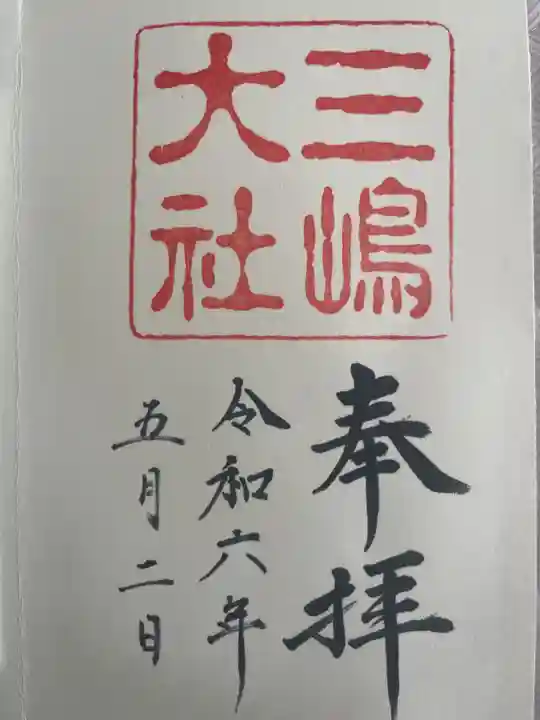 三嶋
大社
奉拝
令和六年
五月二日